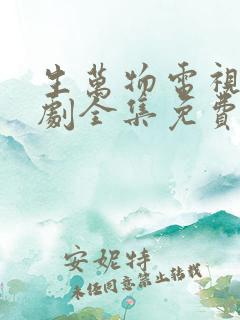 生萬物電視
劇全集免費
安妮特
未經同意禁止轉載